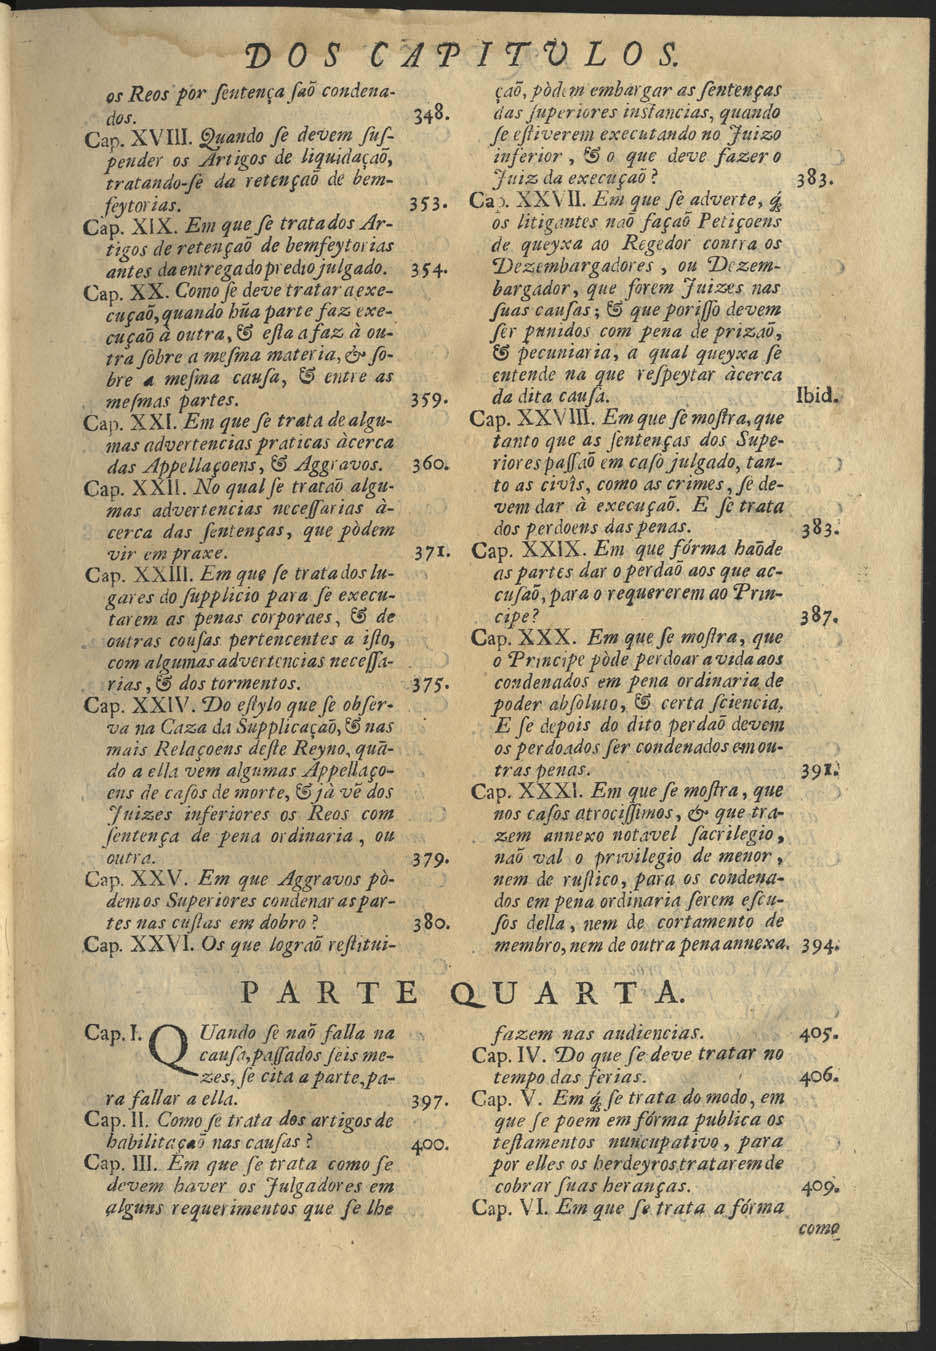 DOS CAPITVLOS.
os Reos por ſentença ſaõ condena-
dos. 348.
Cap. XVIII. Quando ſe devem ſuſ-
pender os Artigos de liquidaçaõ,
tratando-ſe da retençaõ de bem-
feytorias. 353.
Cap. XIX. Em que ſe trata dos Ar-
tigos de retençaõ de bemfeytorias
antes da entrega do predio julgado. 354.
Cap. XX. Como ſe deve tratar a exe-
cuçaõ, quando hũa parte faz exe-
cuçaõ à outra, & eſta a faz à ou-
tra ſobre a meſma materia, & ſo-
bre a meſma cauſa, & entre as
meſmas partes. 359.
Cap. XXI. Em que ſe trata de algu-
mas advertencias praticas àcerca
das Appellaçoens, & Aggravos. 360.
Cap. XXII. No qual ſe trataõ algu-
mas advertencias neceſſarias à-
cerca das ſentenças, que pòdem
vir em praxe. 371.
Cap. XXIII. Em que ſe trata dos lu-
gares do ſupplicio para ſe execu-
tarem as penas corporaes, & de
outras couſas pertencentes a iſto,
com algumas advertencias neceſſa-
rias, & dos tormentos. 375.
Cap. XXIV. Do eſtylo que ſe obſer-
va na Caza da Supplicaçaõ, & nas
mais Relaçoens deſte Reyno, quã-
do a ella vem algumas Appellaço-
ens de caſos de morte, & jà vẽ dos
Juizes inferiores os Reos com
ſentença de pena ordinaria, ou
outra. 379.
Cap. XXV. Em que Aggravos pò-
dem os Superiores condenar as par-
tes nas cuſtas em dobro? 380.
Cap. XXVI. Os que lograõ reſtitui-
çaõ, pòdem embargar as ſentenças
das ſuperiores inſtancias, quando
ſe eſtiverem executando no Juizo
inferior, & o que deve fazer o
Juiz da execuçaõ? 383.
Cap. XXVII. Em que ſe adverte, q́
os litigantes naõ façaõ Petiçoens
de queyxa ao Regedor contra os
Dezembargadores, ou Dezem-
bargador, que forem Juizes nas
ſuas cauſas; & que poriſſo devem
ſer punidos com pena de prizaõ,
& pecuniaria, a qual queyxa ſe
entende na que reſpeytar àcerca
da dita cauſa. Ibid.
Cap. XXVIII. Em que ſe moſtra, que
tanto que as ſentenças dos Supe-
riores paſſaõ em caſo julgado, tan-
to as civîs, como as crimes, ſe de-
vem dar à execuçaõ. E ſe trata
dos perdoens das penas. 383.
Cap. XXIX. Em que fórma haõde
as partes dar o perdaõ aos que ac-
cuſaõ, para o requererem ao Prin-
cipe? 387.
Cap. XXX. Em que ſe moſtra, que
o Principe pòde perdoar a vida aos
condenados em pena ordinaria de
poder abſoluto, & certa ſciencia.
E ſe depois do dito perdaõ devem
os perdoados ſer condenados em ou-
tras penas. 391.
Cap. XXXI. Em que ſe moſtra, que
nos caſos atrociſſimos, & que tra-
zem annexo notavel ſacrilegio,
naõ val o privilegio de menor,
nem de ruſtico, para os condena-
dos em pena ordinaria ſerem eſcu-
ſos della, nem de cortamento de
membro, nem de outra pena annexa. 394.
PARTE QUARTA.
Cap. I. QUando ſe naõ falla na
cauſa, paſſados ſeis me-
zes, ſe cita a parte, pa-
ra fallar a ella. 397.
Cap. II. Como ſe trata dos artigos de
habilitaçaõ nas cauſas? 400.
Cap. III. Em que ſe trata como ſe
devem haver os Julgadores em
alguns requerimentos que ſe lhe
fazem nas audiencias. 405.
Cap. IV. Do que ſe deve tratar no
tempo das ferias. 406.
Cap. V. Em q́ ſe trata do modo, em
que ſe poem em fórma publica os
teſtamentos nuncupativo, para
por elles os herdeyros tratarem de
cobrar ſuas heranças. 409.
Cap. VI. Em que ſe trata a fórma
como